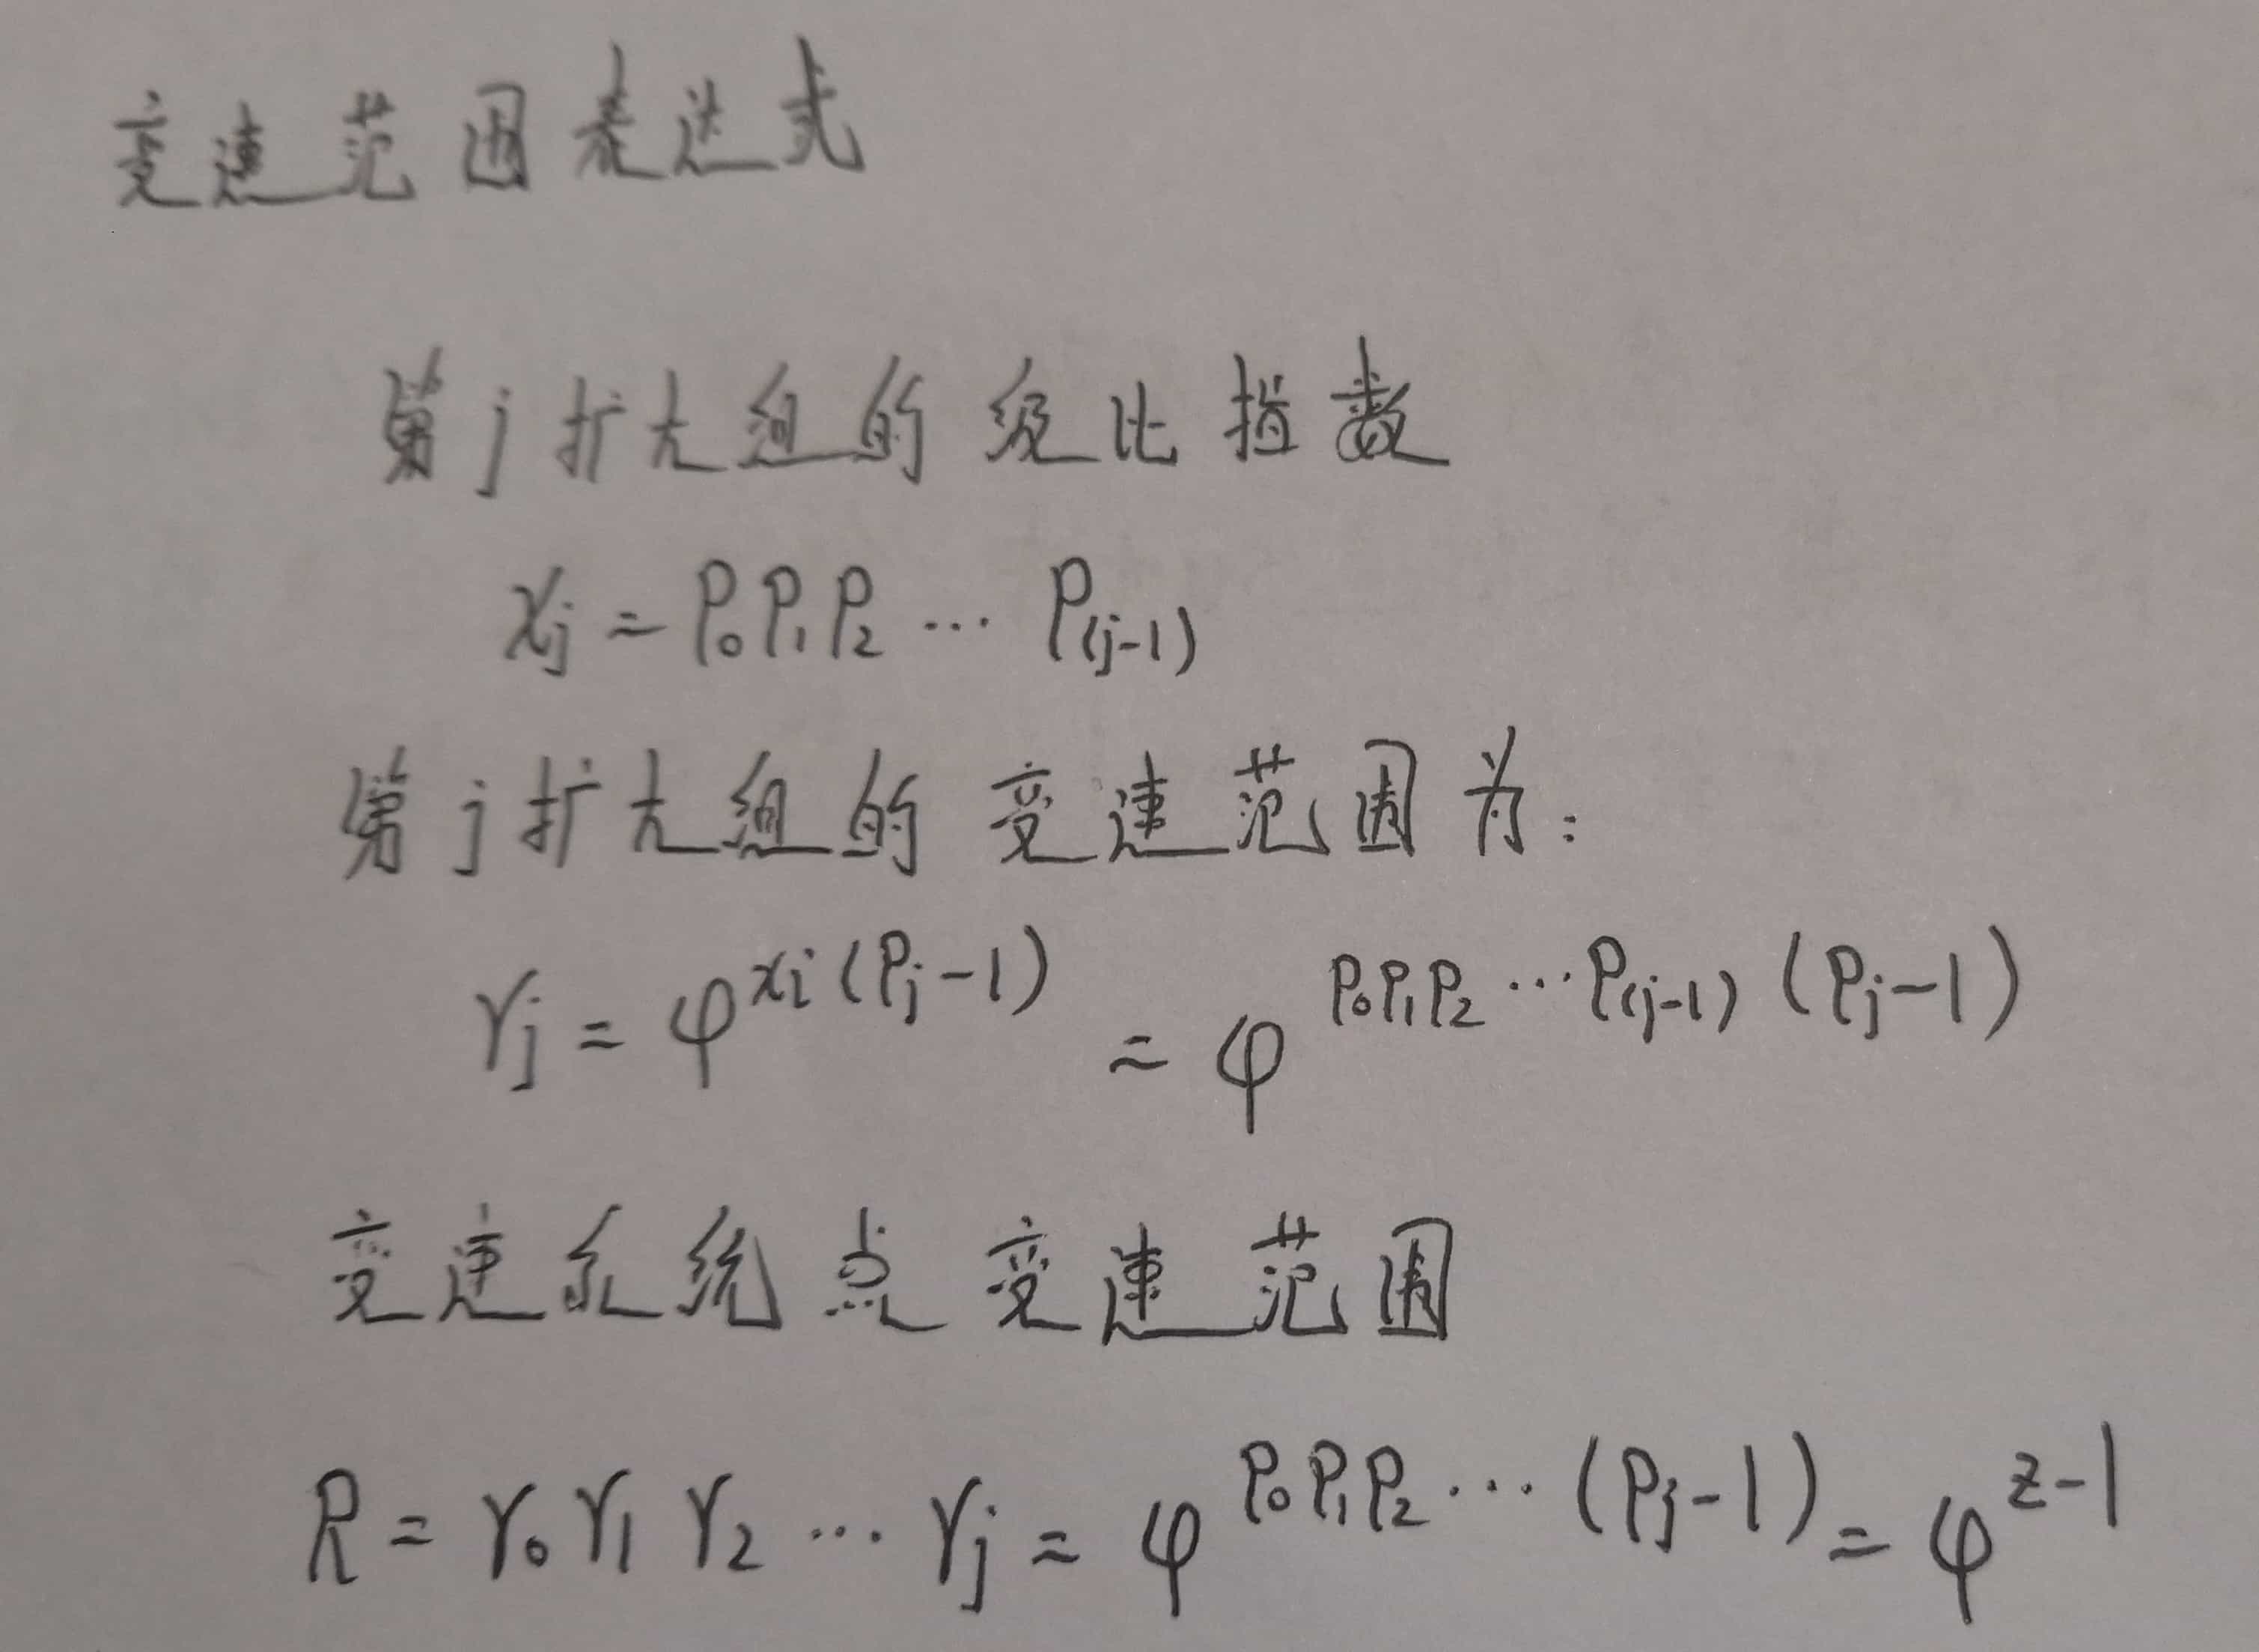 变速范围表达式
第j扩大组的级比指数
x_j = P_0 P_1 P_2 … P_(j-1)
第j扩大组的变速范围为:
r_j = φ^{x_i (P_j - 1)} = φ^{P_0 P_1 P_2 … P_(j-1) (P_j - 1)}
变速系统点变速范围
R = r_0 r_1 r_2 … r_j = φ^{P_0 P_1 P_2 … (P_j - 1)} = φ^{z-1}